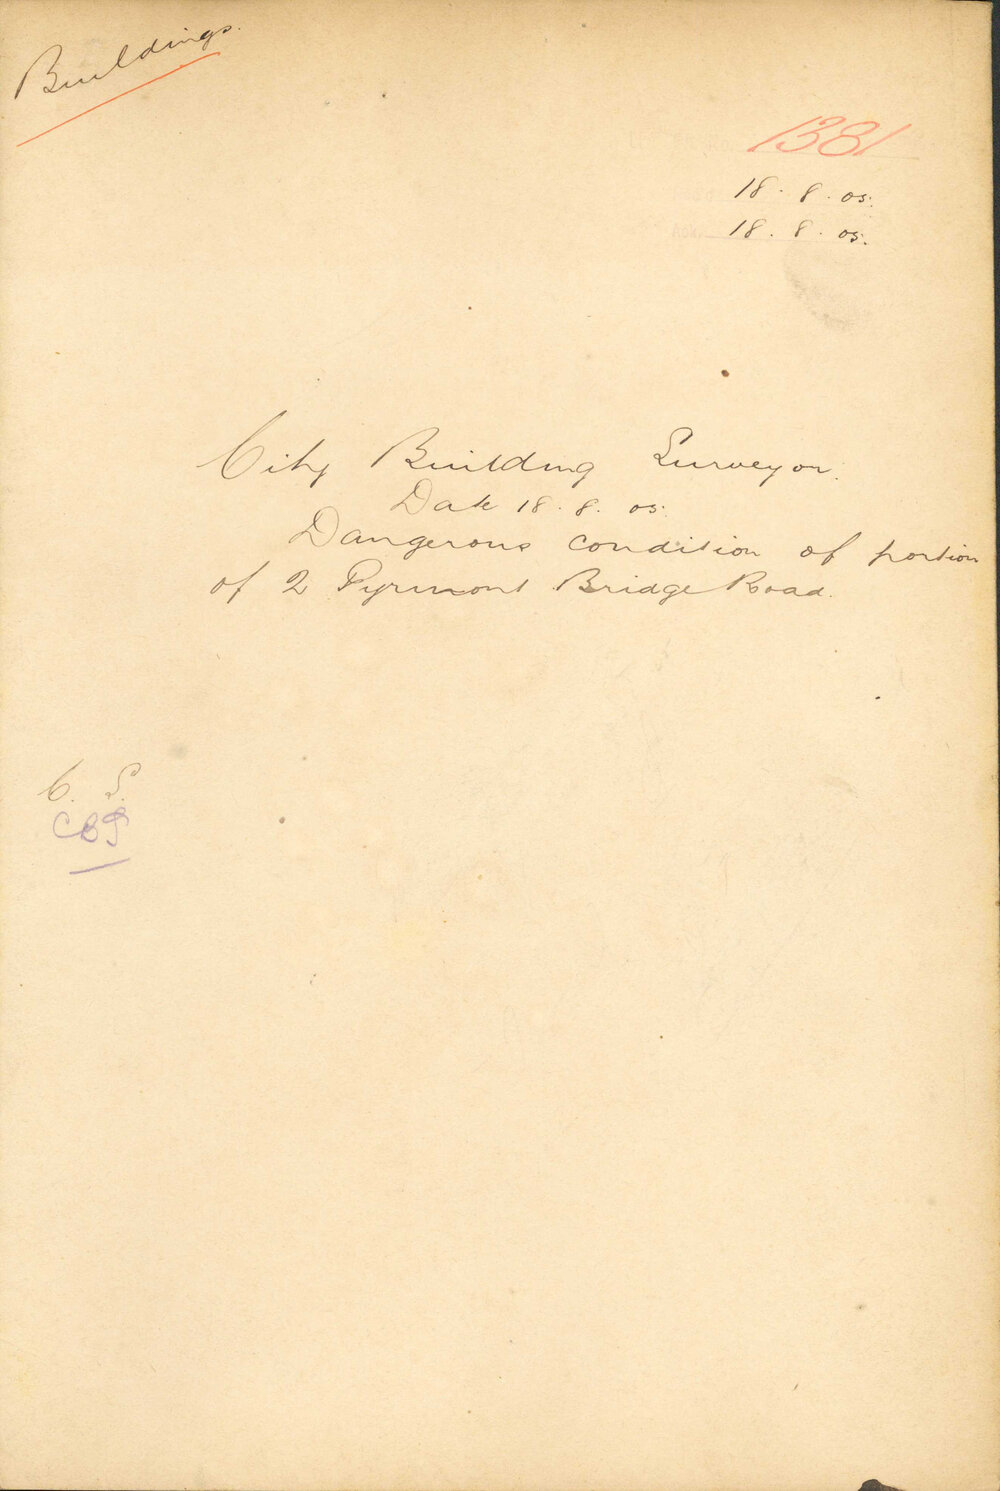 Buildings.
1381
18. 8. 05.
18. 8. 05.
City Building Surveyor.
Date 18. 8. 05.
Dangerous condition of portion
of 2 Pyrmont Bridge Road.
C. S.
CBS